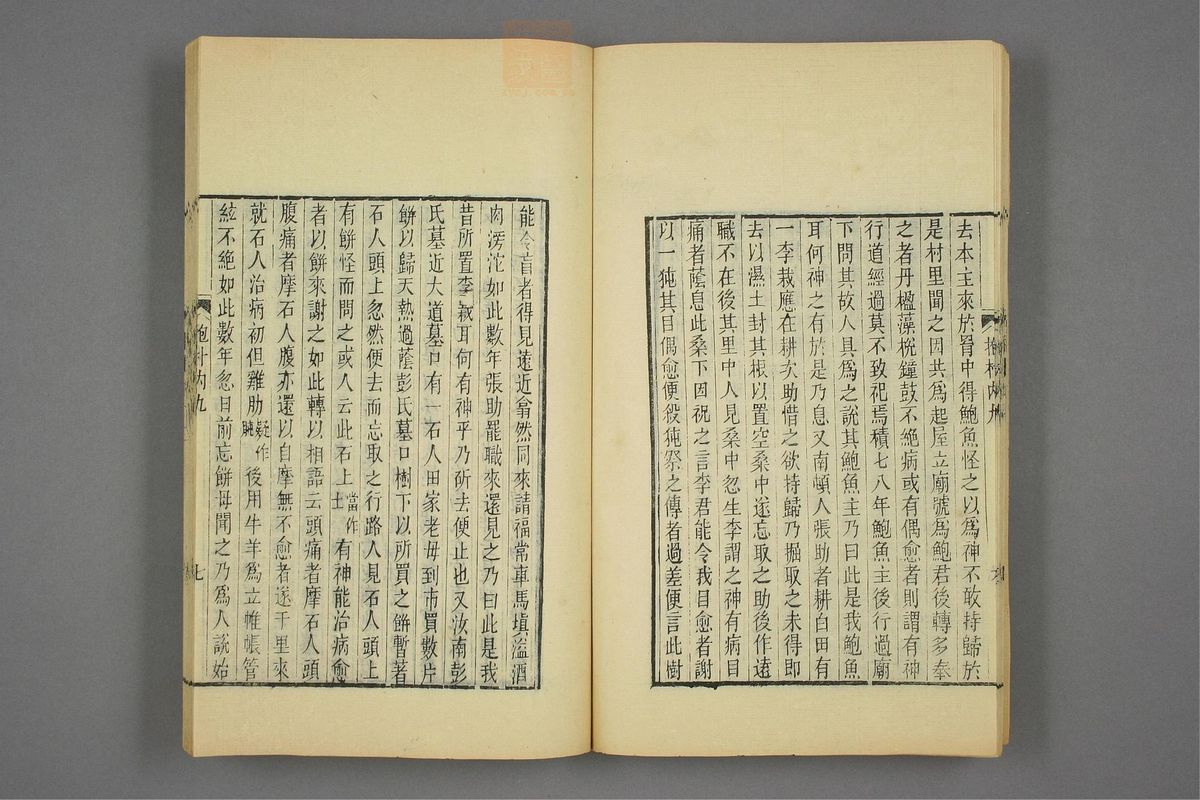 去本主來於罥中得鮑魚怪之以爲神不敢持歸於
是村里聞之因共爲起屋立廟號爲鮑君後轉多奉
之者丹楹藻棁鐘鼓不絕病或有偶愈者則謂有神
行道經過莫不致祀焉積七八年鮑魚主後行過廟
下問其故人具爲之說其鮑魚主乃曰此是我鮑魚
耳何神之有於是乃息又南頓人張助者耕白田有
一李栽應在耕次助惜之欲持歸乃掘取之未得即
去以濕土封其根以置空桑中遂忘取之助後作遠
職不在後其里中人見桑中忽生李謂之神有病目
痛者蔭息此桑下因祝之言李君能令我目愈者謝
以一㹠其目偶愈便殺㹠祭之傳者過差便言此樹
能令盲者得見遠近翕然同來請福常車馬塡溢酒
肉滂沱如此數年張助罷職來還見之乃曰此是我
昔所置李栽耳何有神乎乃斫去便止也又汝南彭
氏墓近大道墓口有一石人田家老母到市買數片
餅以歸天熱過蔭彭氏墓口樹下以所買之餅暫著
石人頭上忽然便去而忘取之行路人見石人頭上
有餅怪而問之或人云此石上當作士有神能治病愈
者以餅來謝之如此轉以相語云頭痛者摩石人頭
腹痛者摩石人腹亦還以自摩無不愈者遂千里來
就石人治病初但雞肋疑作豚後用牛羊爲立帷帳管
絃不絕如此數年忽日前忘餅母聞之乃爲人說始
抱朴內九
七